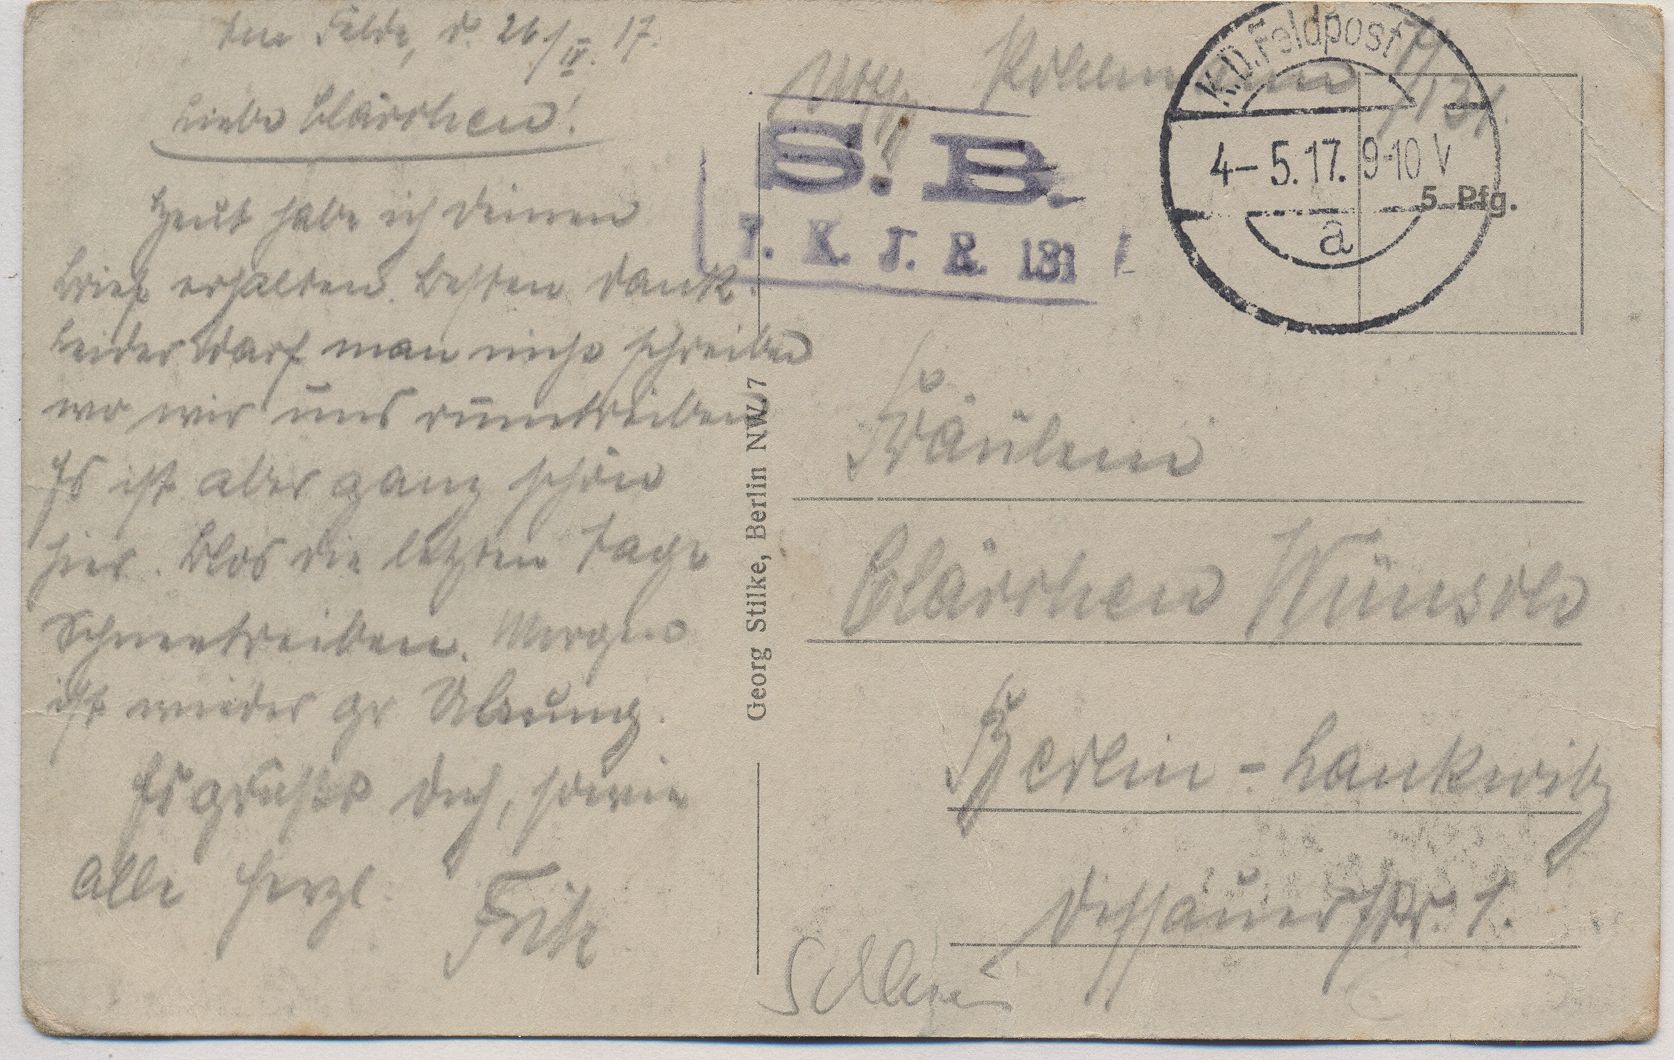 Im Felde, d. 26/IV. 17.
Liebe Clärchen!
Heut habe ich deinen
Brief erhalten. Besten Dank.
Leider darf man nicht schreiben
wo wir uns rumtreiben
Es ist aber ganz schön
hier. Blos die letzten Tage
Schneetreiben. Morgen
ist wieder gr Übung.
Es grüsst Dich, sowie
alle herzl.
Fritz
Georg Stilke, Berlin NW. 7
S. B.
K. J. R. 131
K.D. Feldpost
4-5.17. 9-10 V
a
5 Pfg.
Fräulein
Clärchen Wünsch
Berlin-Lankwitz
Dessauerstr. 1.